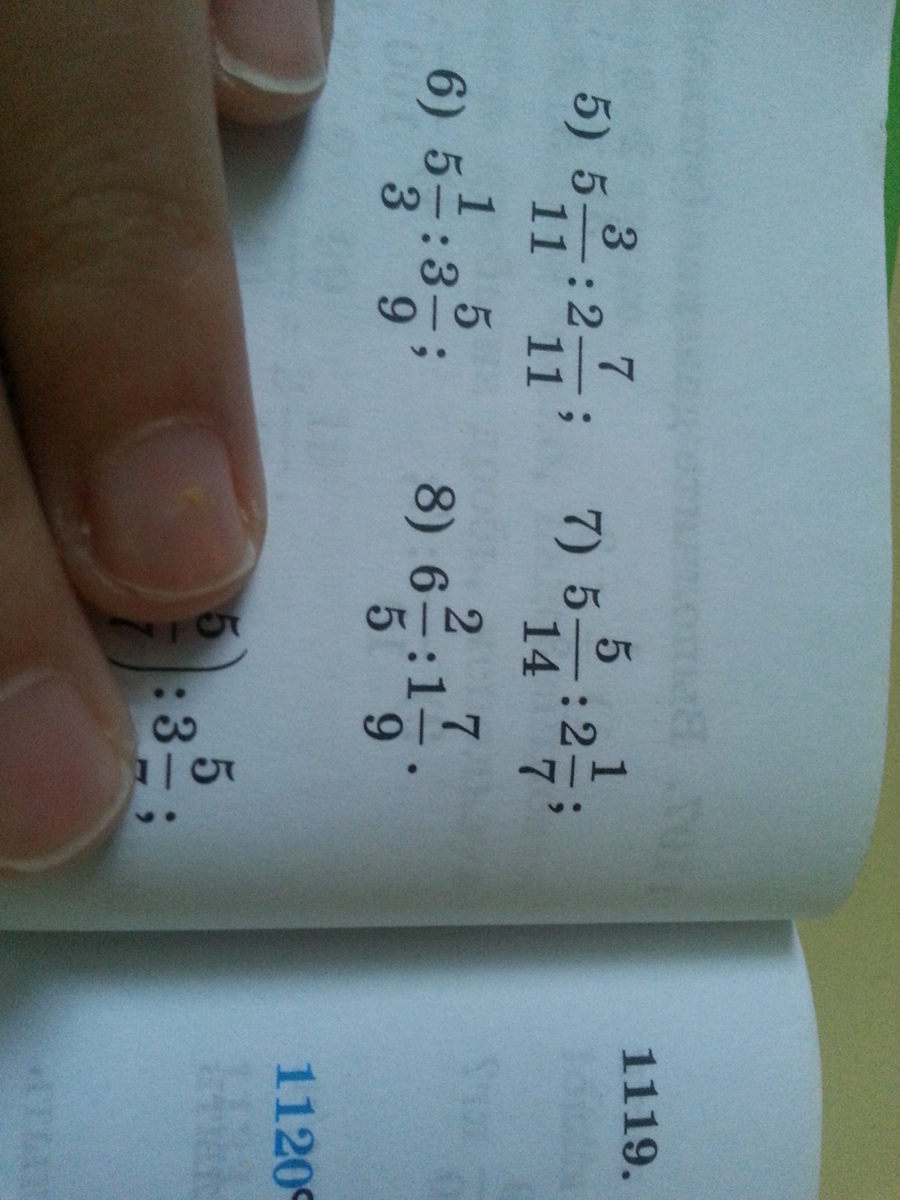 5) 5 3/11 : 2 7/11; 7) 5 5/14 : 2 1/7;
6) 5 1/3 : 3 5/9; 8) 6 2/5 : 1 7/9.
5/7) : 3 5/7;
1119.
1120°